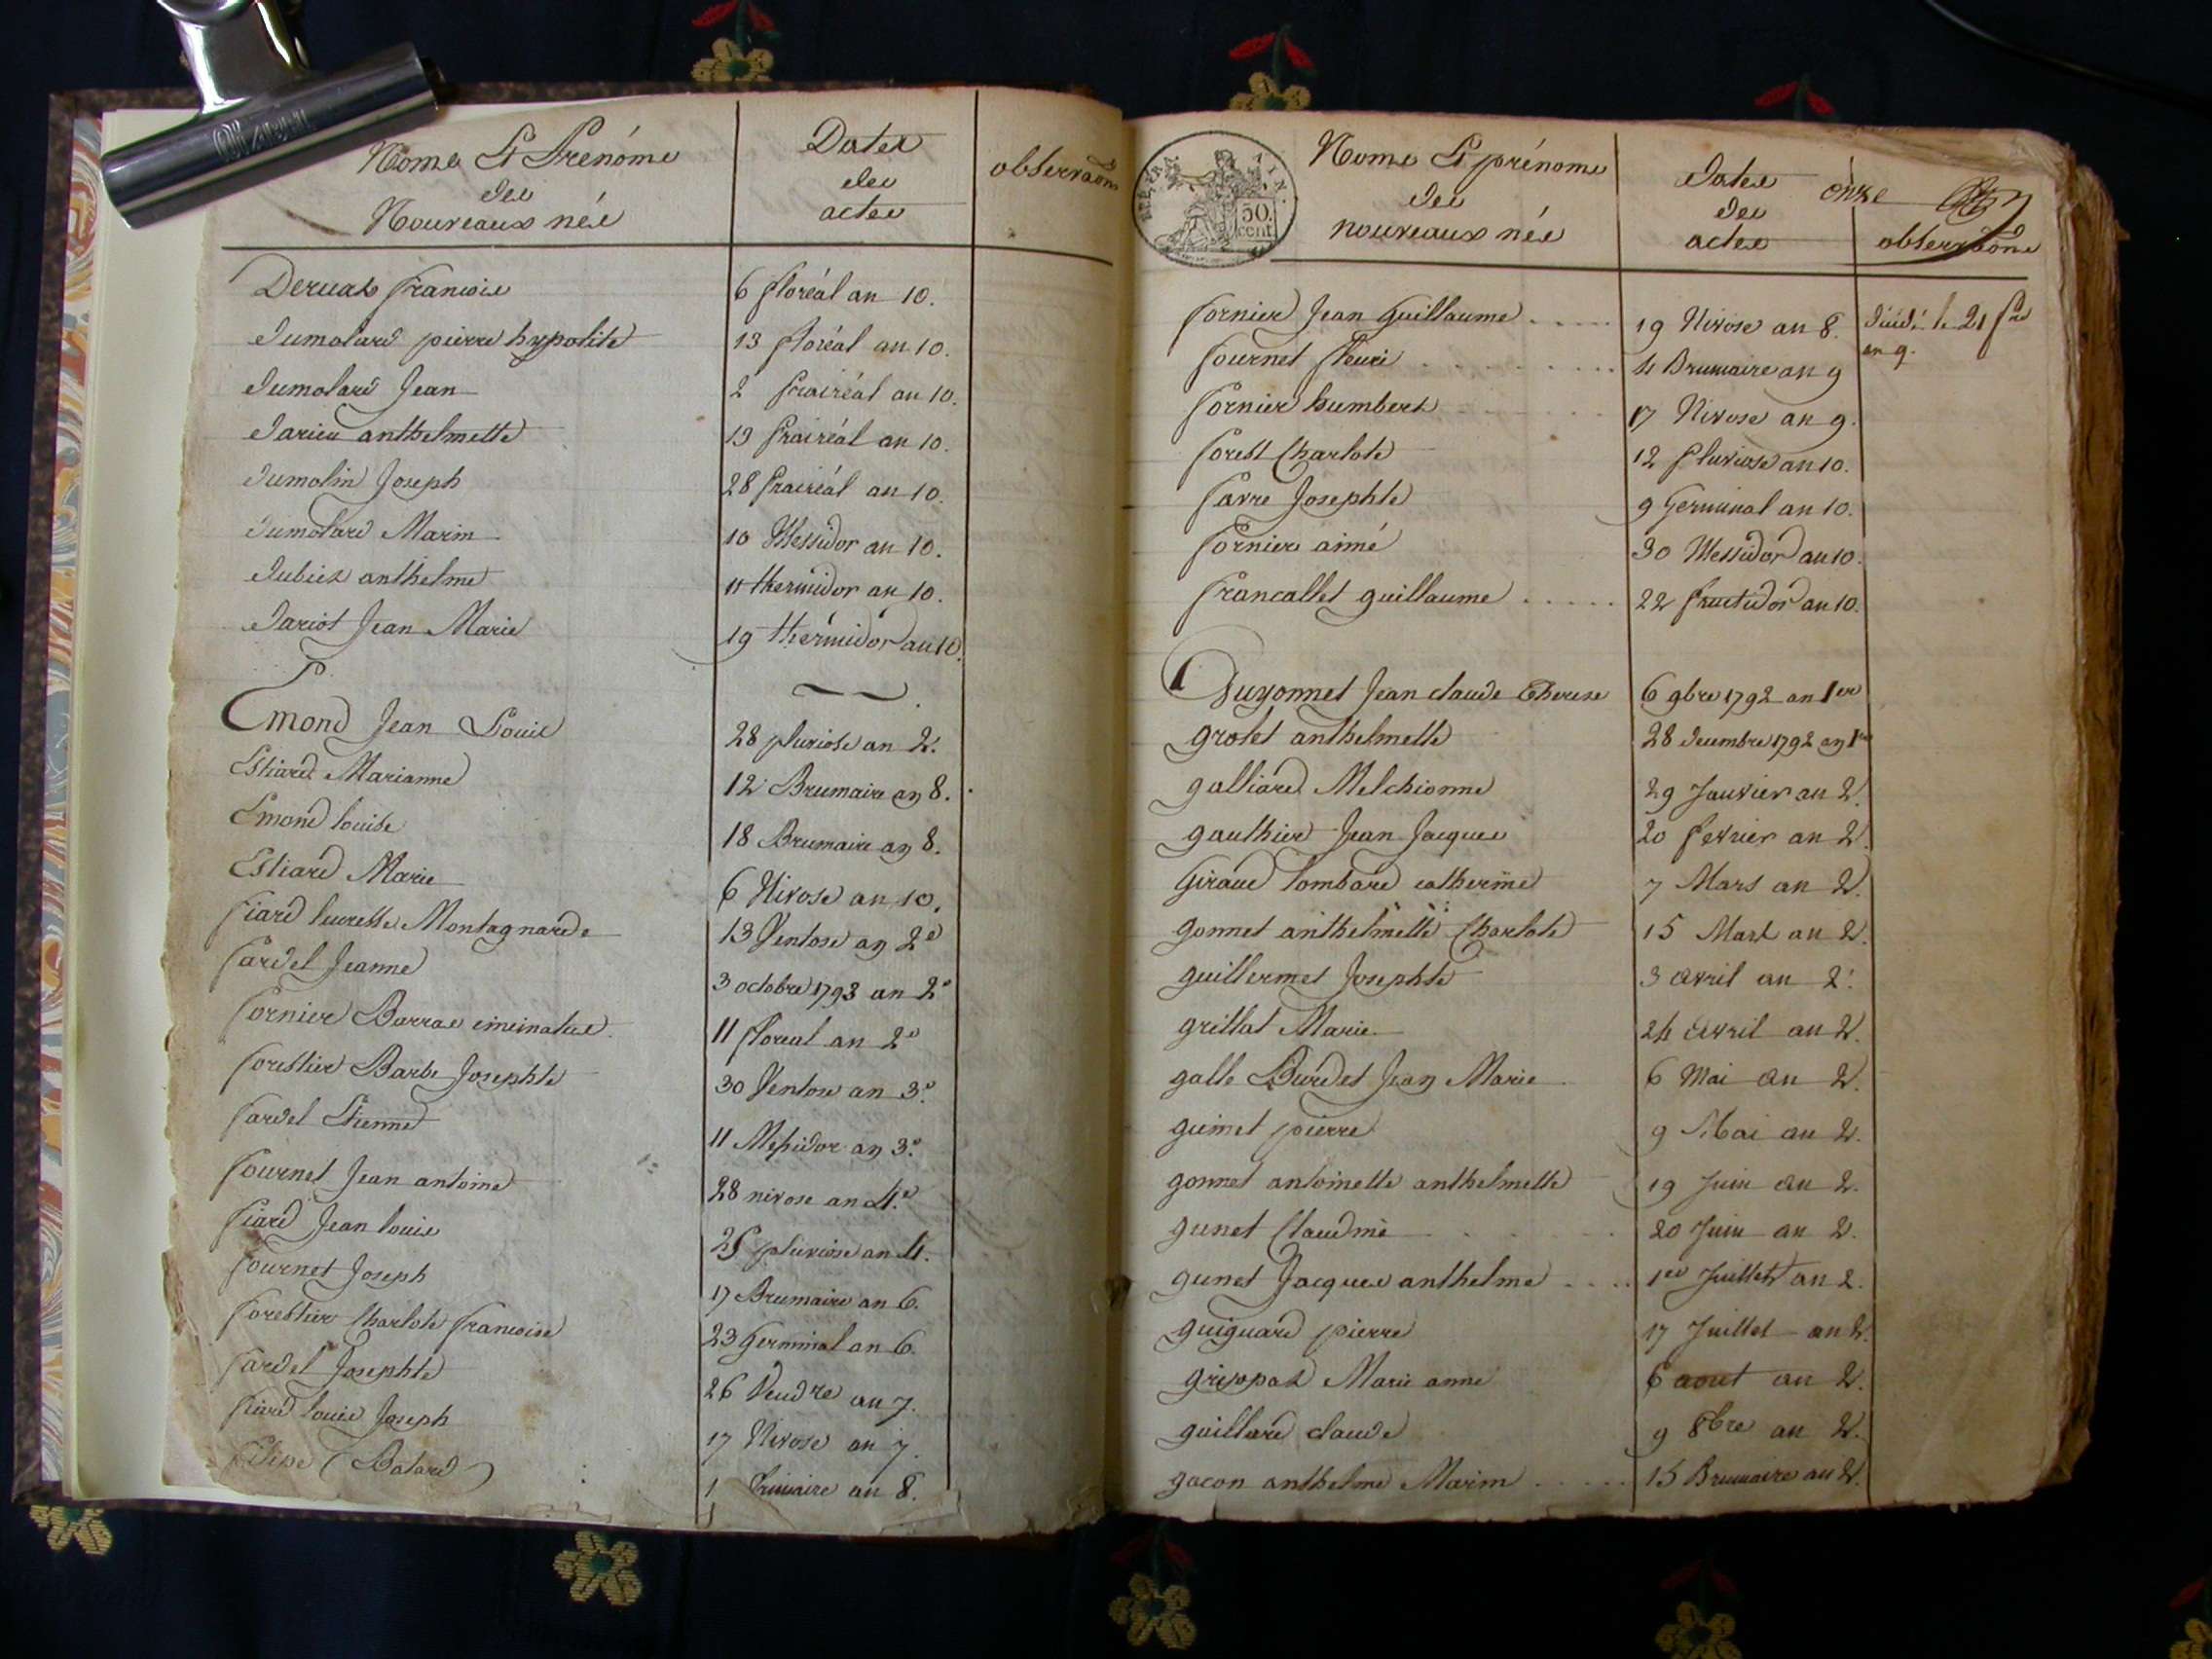 Noms Et Prénoms
des
Nouveaux nés
Dates
des
actes
observaõns
Dervas francois 6 floréal an 10.
dumolard pierre hypolite 13 floréal an 10.
dumolard Jean 2 prairéal an 10.
darieu anthelmette 13 prairéal an 10.
dumolin Joseph 28 prairéal an 10.
dumolard Marin 10 Messidor an 10.
dubiez anthelme 11 thermidor an 10.
dariot Jean Marie 19 thérmidor an 10.
Emond Jean Louis 28 pluviose an 2.
Estiard Marianne 12 Brumaire an 8.
Emond louise 18 Brumaire an 8.
Estiard Marie 6 Nivose an 10.
fiard Montagnarde 13 Ventose an 2e
fardel Jeanne 3 octobre 1793 an 2e
fornier Barras 11 floreal an 2e
forestier Barbe Josephte 30 Ventose an 3e.
fardel Etienne 11 Messidor an 3e.
fournet Jean antoine 28 nivose an 4e.
fiard Jean louis 25 pluviose an 4.
fournet Joseph 17 Brumaire an 6.
forestier Charlote francoise 23 Germinal an 6.
fardel Josephte 26 Vendre an 7.
fiard louis Joseph 17 Nivose an 7.
(Batard) 1 frimaire an 8.
TIMBRE
50.
cent.
Noms Et prénoms
des
nouveaux nés
Dates
des
actes
onze
observaõns
fornier Jean Guillaume ..... 19 Nivose an 8. décédé le 21
an 9.
fournet fleuri ......... 4 Brumaire an 9
fornier humbert 17 Nivose an 9.
forest Charlote 12 pluviose an 10.
favre Josephte 9 Germinal an 10.
fornier aimé 30 Messidor an 10.
francallet guillaume ..... 22 fructidor an 10.
Guyonnet Jean claude Therese 6 9bre 1792 an 1er
grolet anthelmette 28 decembre 1792 an 1er
galliard Melchionne 29 Janvier an 2.
gauthier Jean Jacques 20 fevrier an 2.
Giraud lombard catherine 7 Mars an 2.
gonnet anthelmette Charlote 15 Mars an 2.
guillermet Josephte 3 avril an 2.
grillat Marie 24 avril an 2.
galle Burdet Jean Marie 6 Mai an 2.
guimet pierre 9 Mai an 2.
gonnet antoinette anthelmette 19 Juin an 2.
gunet Claudine 20 Juin an 2.
gunet Jacques anthelme .... 1er Juillet an 2.
guiguard pierre 17 Juillet an 2.
grisopaz Marie anne 6 aout an 2.
guillard claude 9 8bre an 2.
gacon anthelme Marin ..... 15 Brumaire an 2.